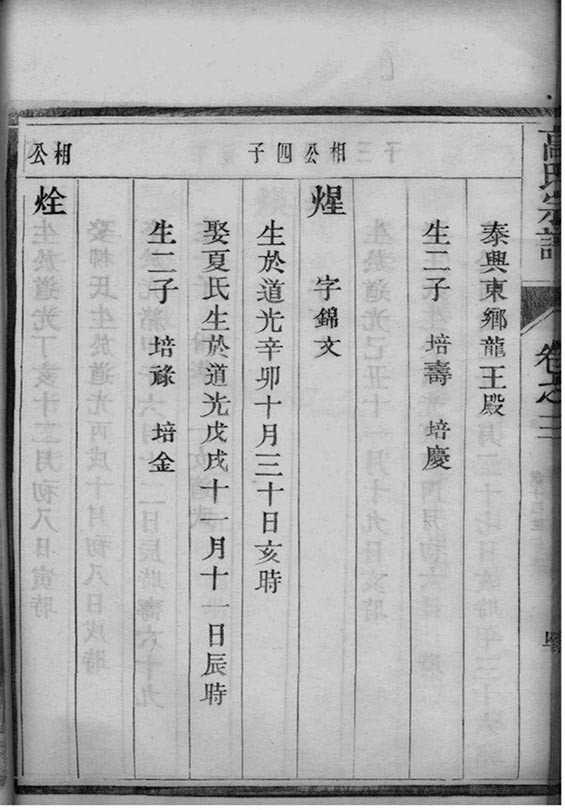 高氏宗譜 卷之三
泰興東鄉龍王殿
生二子 培壽 培慶
相公四子
煋 字錦文
生於道光辛卯十月三十日亥時
娶夏氏生於道光戊戌十一月十一日辰時
生二子 培祿 培金
相公
烇